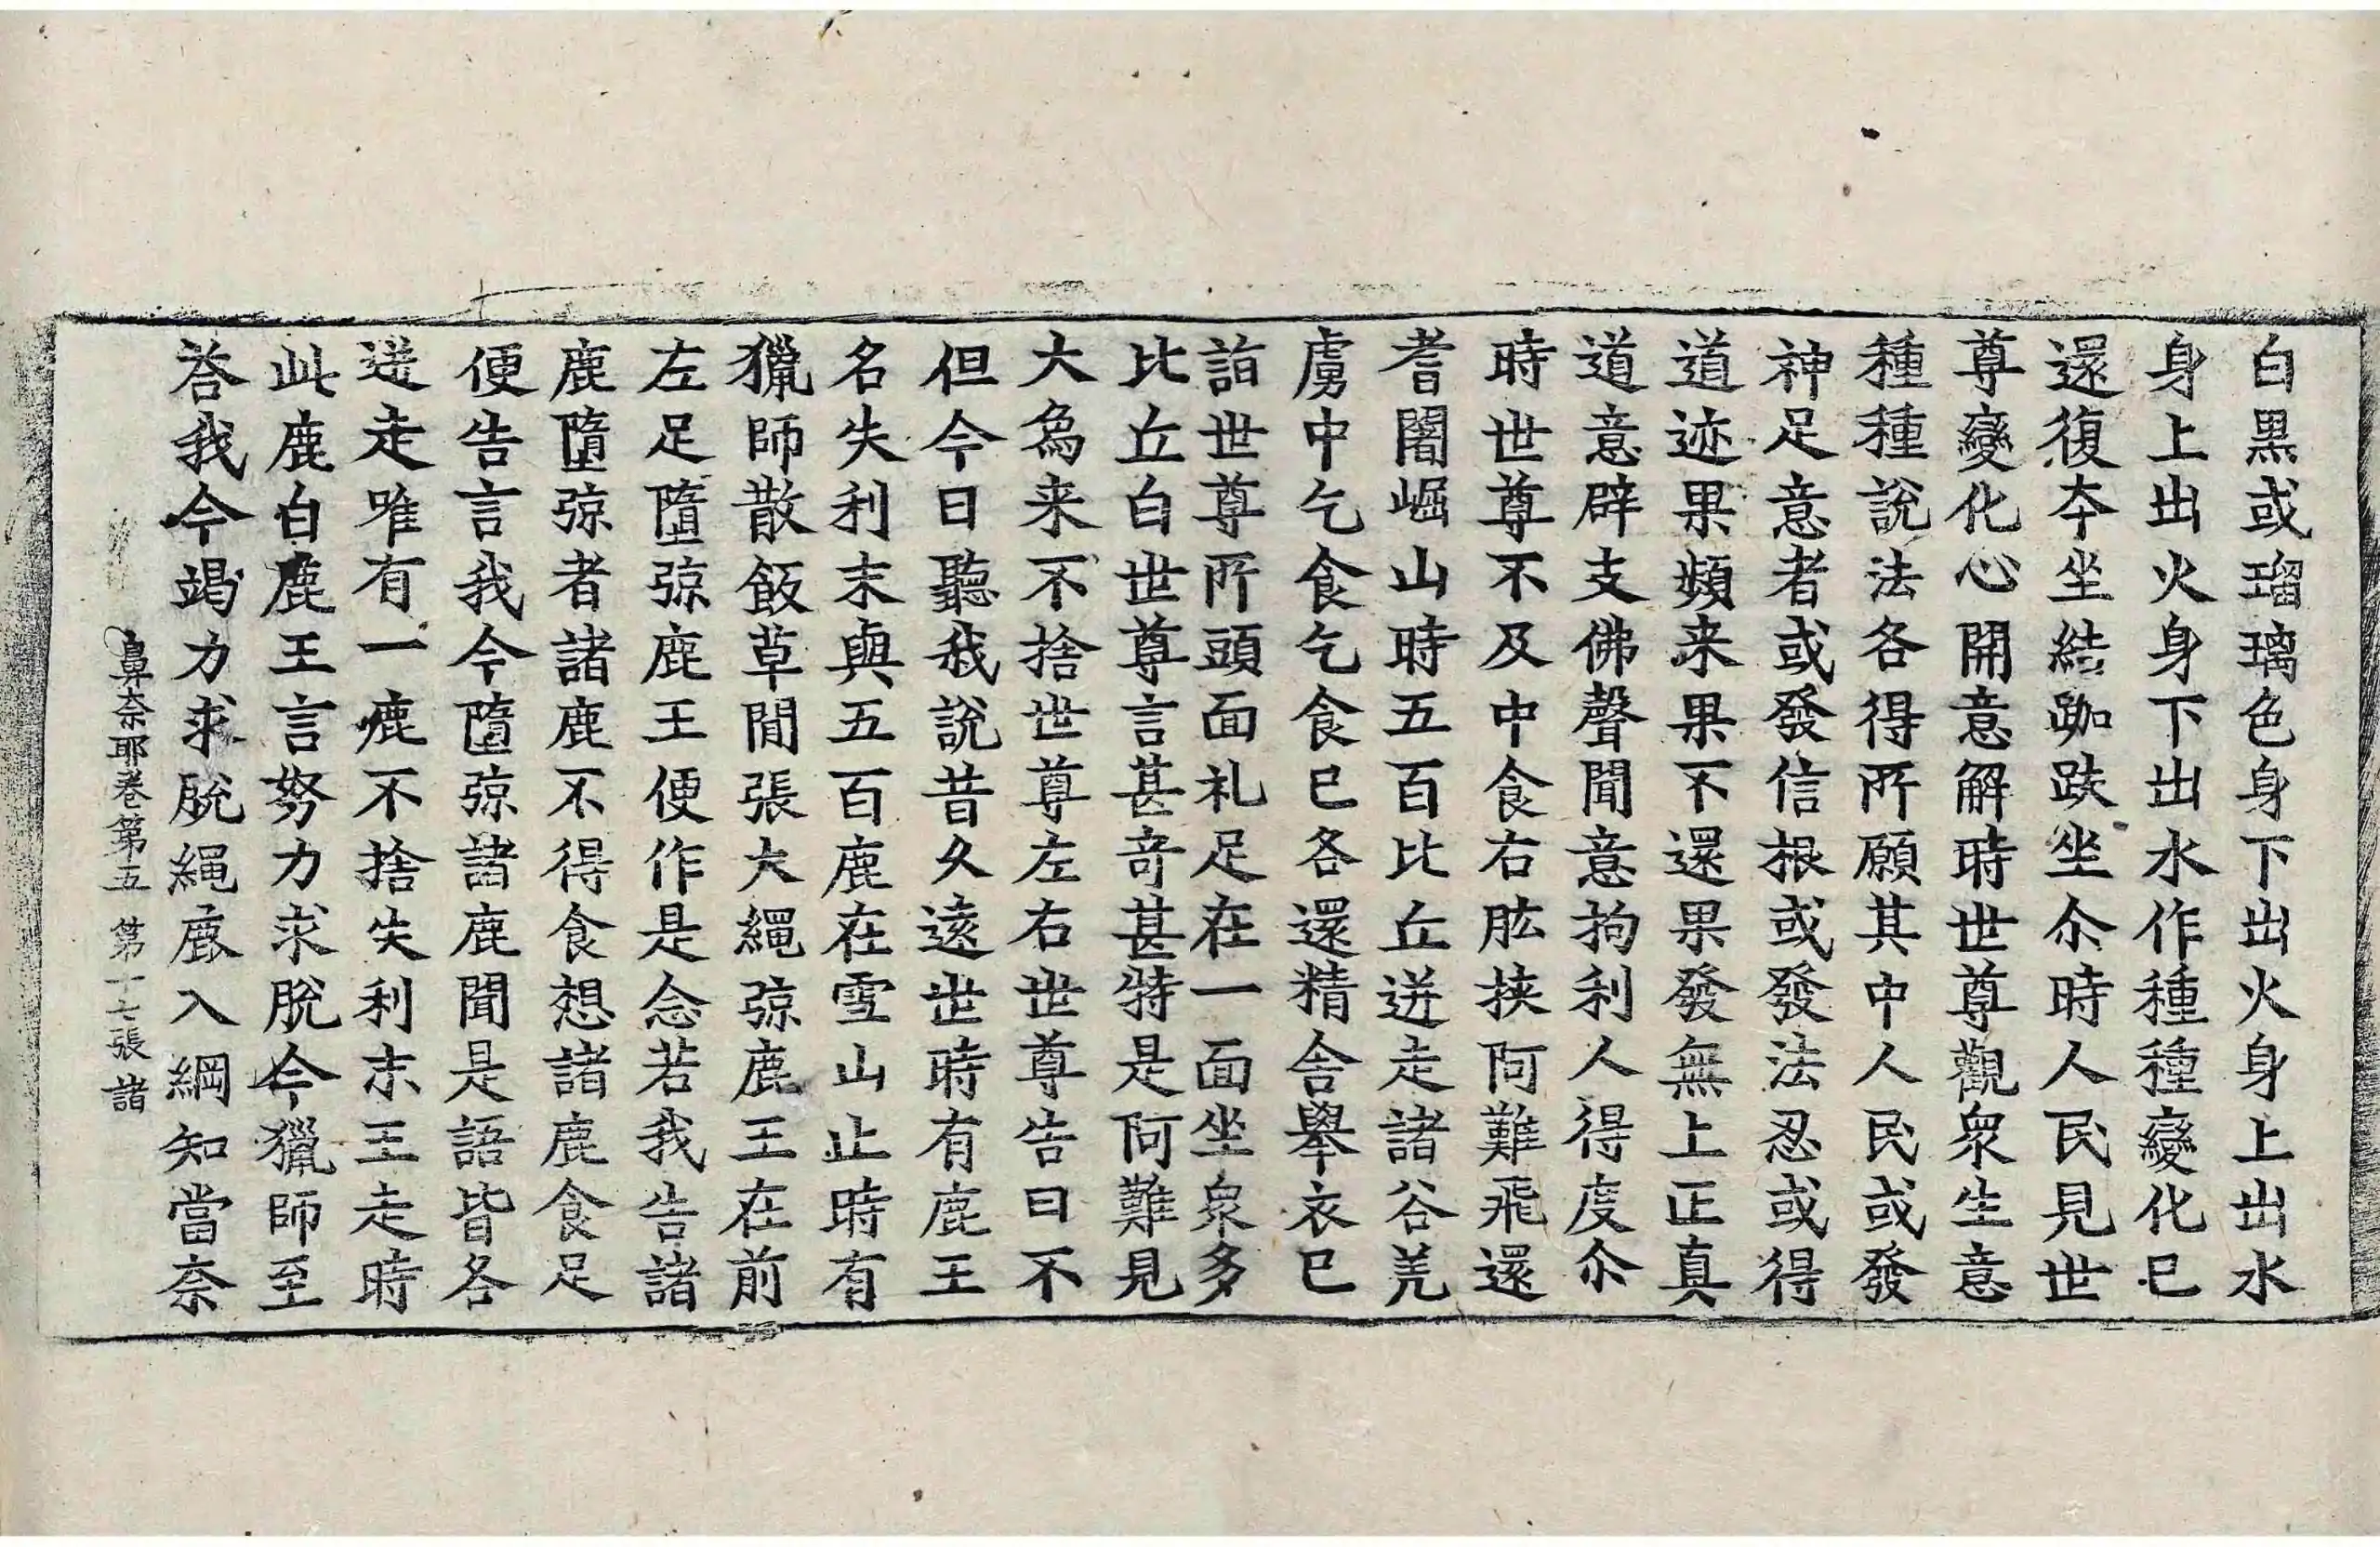 白黒或瑠璃色身下出火身上出水
身上出火身下出水作種種變化已
還復夲坐結跏趺坐尒時人民見世
尊變化心開意解時世尊觀衆生意
種種說法各得所願其中人民或發
神足意者或發信根或發法忍或得
道迹果頻来果不還果發無上正真
道意辟支佛聲聞意拘利人得度尒
時世尊不及中食右肱挾阿難飛還
耆闍崛山時五百比丘迸走諸谷羌
虜中乞食乞食已各還精舎舉衣已
詣世尊所頭面礼足在一面坐衆多
比丘白世尊言甚奇甚特是阿難見
大為来不捨世尊左右世尊告曰不
但今日聽我說昔久遠世時有鹿王
名失利末與五百鹿在雪山止時有
獵師散飯草間張大繩弶鹿王在前
左足墮弶鹿王便作是念若我告諸
鹿墮弶者諸鹿不得食想諸鹿食足
便告言我今墮弶諸鹿聞是語皆各
迸走唯有一鹿不捨失利末王走時
此鹿白鹿王言努力求脫今獵師至
荅我今竭力求脫繩鹿入綱知當奈
鼻奈耶卷第五 第十七張 諸